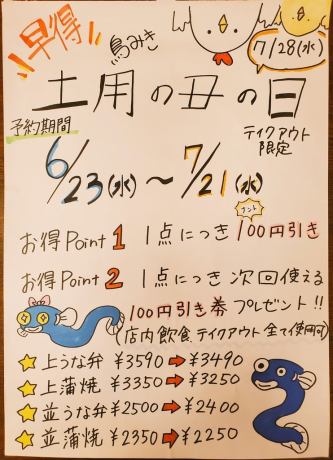 早得
鳥みき
7/28(水)
土用の丑の日
予約期間
テイクアウト
限定
6/23(水)～7/21(水)
ナント
お得Point 1 1点につき100円引き
お得Point 2 1点につき次回使える
100円引き券プレゼント!!
(店内飲食テイクアウト全て使用可)
上うな弁 ¥3590➡¥3490
上蒲焼 ¥3350➡¥3250
並うな弁 ¥2500➡¥2400
並蒲焼 ¥2350➡¥2250